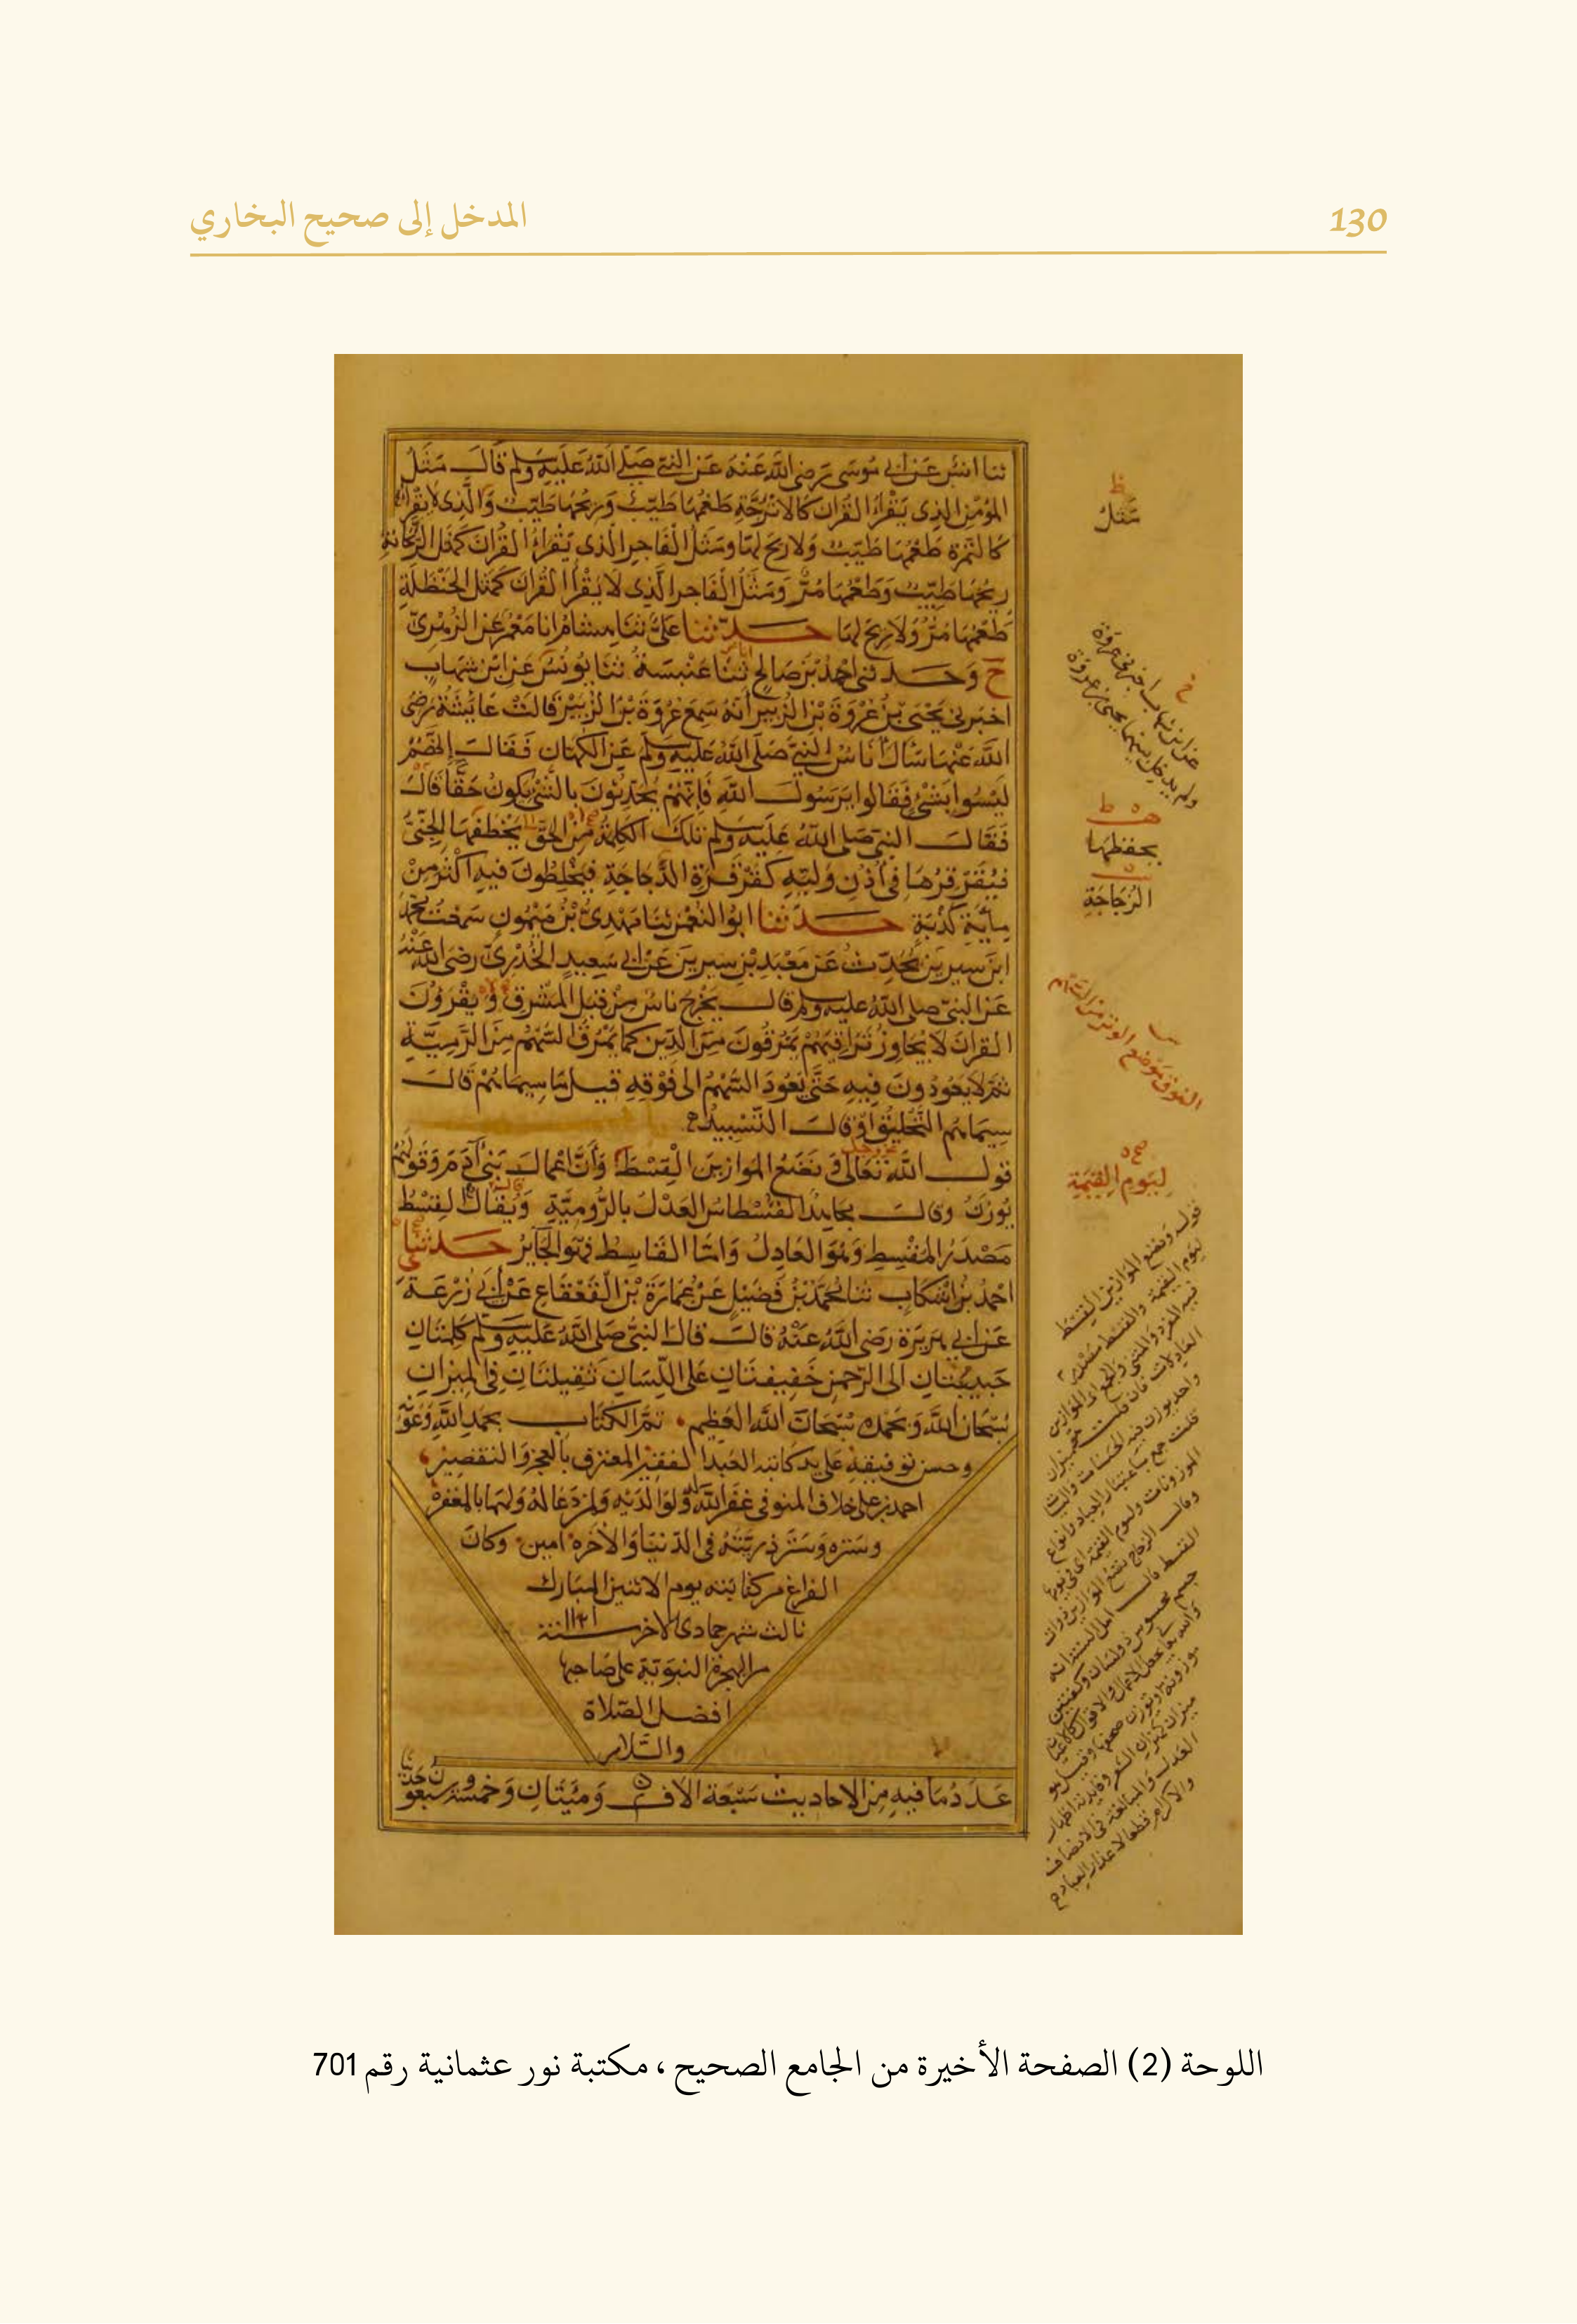 130
المدخل إلى صحيح البخاري
ثنا انس عن ابي موسى رضى الله عنه عن النبي صلى الله عليه وسلم قال مثل
المؤمن الذى يقرأ القران كالاترجة طعمها طيب وريحها طيب والذى لا يقرأ
كالتمرة طعمها طيب ولا ريح لها ومثل الفاجر الذى يقرأ القران كمثل الريحانة
ريحها طيب وطعمها مر ومثل الفاجر الذى لا يقرأ القران كمثل الحنظلة
طعمها مر ولا ريح لها حدثنا على ثنا هشام انا معمر عن الزهرى
ح وحدثنى احمد بن صالح ثنا عنبسة ثنا يونس عن ابن شهاب
اخبرنى يحيى بن عروة بن الزبير انه سمع عروة بن الزبير قالت عائشة رضى
الله عنها سأل اناس النبي صلى الله عليه وسلم عن الكهان فقال انهم
ليسوا بشئ فقالوا يرسول الله فانهم يحدثون بالشئ يكون حقا قال
فقال النبي صلى الله عليه وسلم تلك الكلمة من الحق يخطفها الجنى
فيقرقرها فى اذن وليه كقرقرة الدجاجة فيخلطون فيه اكثر من
مائة كذبة حدثنا ابو النعمن ثنا مهدى بن ميمون سمعت محمد
ابن سيرين يحدث عن معبد بن سيرين عن ابى سعيد الخدرى رضى الله عنه
عن النبي صلى الله عليه وسلم قال يخرج ناس من قبل المشرق ويقرؤن
القران لا يجاوز تراقيهم يمرقون من الدين كما يمرق السهم من الرمية
ثم لا يعودون فيه حتى يعود السهم الى فوقه قيل ما سيماهم قال
سيماهم التحليق او قال التسبيد
قول الله تعالى ونضع الموازين القسط وان اعمال بنى آدم وقولهم
يوزن وقال مجاهد القسطاس العدل بالرومية ويقال القسط
مصدر المقسط وهو العادل واما القاسط فهو الجاير حدثنا
احمد بن اشكاب ثنا محمد بن فضيل عن عمارة بن القعقاع عن ابى زرعة
عن ابى هريرة رضى الله عنه قال قال النبي صلى الله عليه وسلم كلمتان
حبيبتان الى الرحمن خفيفتان على اللسان ثقيلتان فى الميزان
سبحان الله وبحمده سبحان الله العظيم تم الكتاب بحمد الله وعونه
وحسن توفيقه على يد كاتبه العبد الفقير المعترف بالعجز والتقصير
احمد بن على خلاف المنوفى غفر الله له ولوالديه ولمن دعا له ولهما بالمغفره
وستره وستر ذريته فى الدنيا والآخره امين وكان
الفراغ من كتابته يوم الاثنين المبارك
ثالث شهر جمادى الاخر سنة
من الهجرة النبوية على صاحبها
افضل الصلاة
والسلام
عدد ما فيه من الاحاديث سبعة الاف ومئيتان وخمسة وسبعون حديثا
مثل
يحفظها
الزجاجة
الفوق موضع الوتر من السهم
ليوم القيمة
اللوحة (2) الصفحة الأخيرة من الجامع الصحيح ، مكتبة نور عثمانية رقم 701